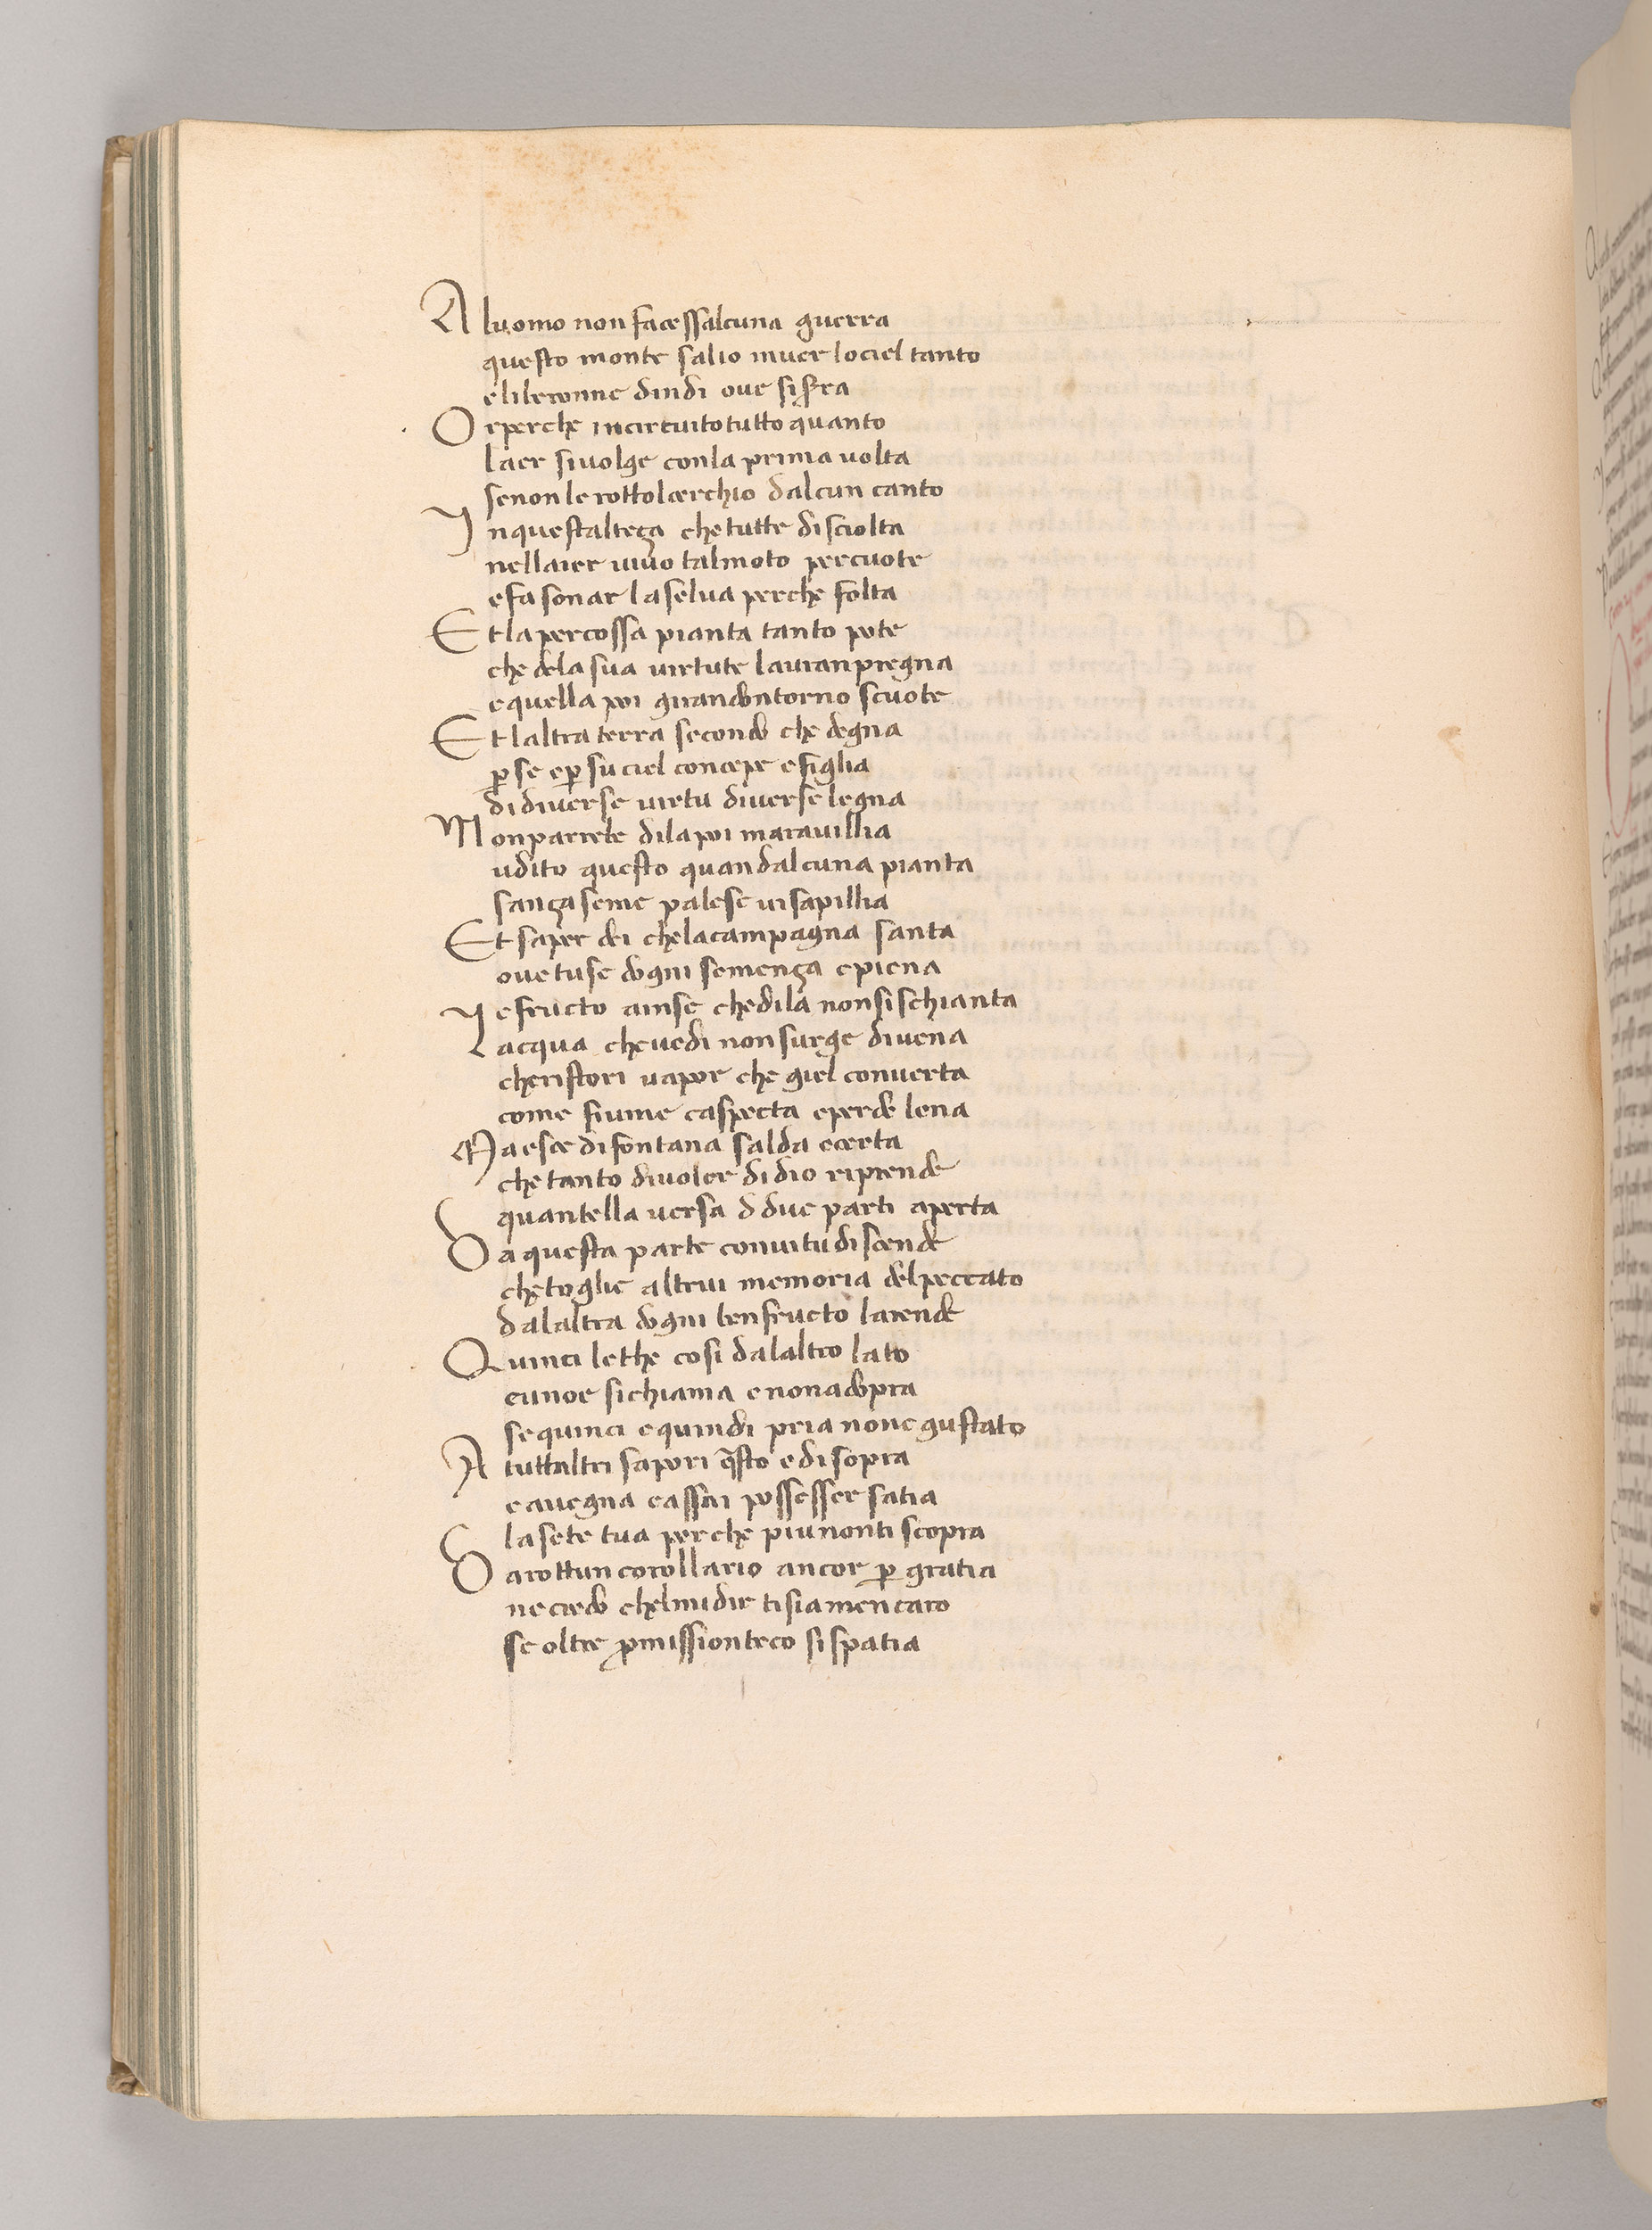 Aluomo non facessalcuna guerra
questo monte salio inuer lociel tanto
elileronne dindi oue siserra
Orperche incircuito tutto quanto
laer siuolge conla prima uolta
senon le rottolcerchio dalcun canto
Inquestalteça che tutte disciolta
nellaier uiuo talmoto percuote
efa sonar laselua perche folta
Et lapercossa pianta tanto pote
che dela sua uirtute lauranpregna
equella poi girandontorno scuote
Et laltra terra secondo che degna
pse ep suciel concepe efiglia
didiuerse uirtu diuerse legna
Nonparrebe dilapoi marauillia
udito questo quandalcuna pianta
sança seme palese uisapillia
Et saper dei chelacampagna santa
ouetuse dogni semença epiena
Iefructo ainse chedila nonsischianta
Lacqua cheuedi nonsurge diuena
cheristori uapor che giel conuerta
come fiume caspecta eperde lena
Maesce difontana salda ecerta
che tanto diuoler didio riprende
quantella uersa d due parti aperta
Daquesta parte conuirtu discende
chetoglie altrui memoria delpeccato
dalaltra dogni benfructo larende
Quinci lethe cosi dalaltro lato
eunoe sichiama enonadopra
sequinci equindi pria none gustato
Atuttaltri sapori qsto edisopra
eauegna cassai possesser satia
lasete tua perche piunonti scopra
Darottun corollario ancor p gratia
necredo chelmidir tisiamencaro
se oltre pmissionteco sispatia